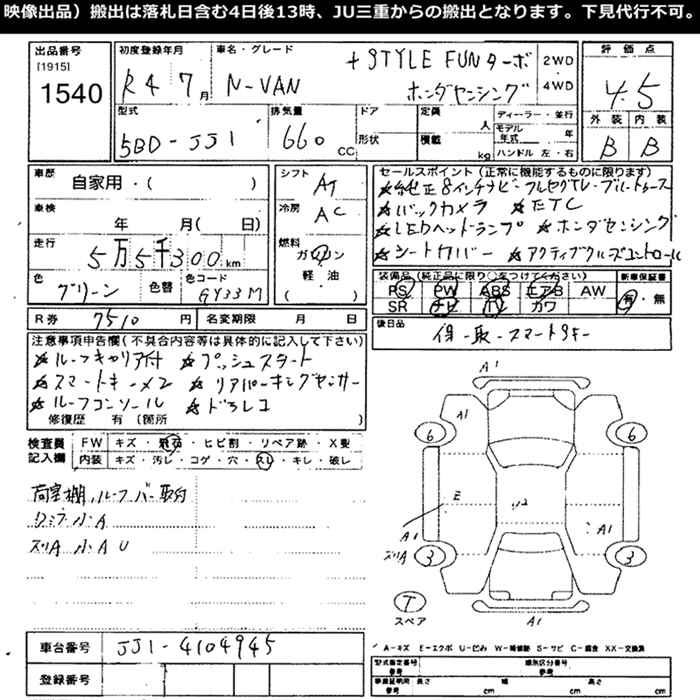 映像出品）搬出は落札日含む4日後13時、JU三重からの搬出となります。下見代行不可。
出品番号
[1915]
1540
初度登録年月
R4 7月
車名・グレード
N-VAN
+STYLE FUN ターボ
ホンダセンシング
2WD
4WD
評価点
4.5
外装 内装
B B
型式
5BD-JJ1
排気量
660 CC
ドア
形状
定員 人
積載 kg
ディーラー・並行
モデル年式 年
ハンドル 左・右
車歴
自家用・( )
車検
年 月( 日)
走行
5万5千300km
色
グリーン
色替
色コード
GY33M
シフト
AT
冷房
AC
燃料
ガソリン
軽・油
( )
セールスポイント（正常に機能するものに限ります）
★純正8インチナビ・フルセグTV・ブルートゥース
★バックカメラ ★ETC
★LEDヘッドランプ ★ホンダセンシング
★シートカバー ★アクティブクルーズコントロール
装備品（純正品に限り○をつけてください）
PS PW ABS エアB AW
SR ナビ TV カワ
新車保証書
有・無
R券 7510円
名変期限 月 日
後日品
保-取-スマートキー
注意事項申告欄(不具合内容等は具体的に記入して下さい)
★ルーフキャリア付 ★プッシュスタート
★スマートキー×2 ★リアパーキングセンサー
★ルーフコンソール ★ドラレコ
修復歴 有（箇所 ）
検査員
記入欄
FW キズ・飛石・ヒビ割・リペア跡・X要
内装 キズ・汚レ・コゲ・穴・スレ・キレ・破レ
荷室棚、ルーフバー取付
スリA 小A U
A1
A1
6
6
E
U2
A1
A1
スリA
3
3
T
スペア
A1
車台番号
JJ1-4104945
登録番号
A-キズ E-エクボ U-凹み W-補修跡 S-サビ C-腐食 XX-交換済
型式指定番号
類別区分番号
車庫証明用
長さ cm
幅 cm
高さ cm